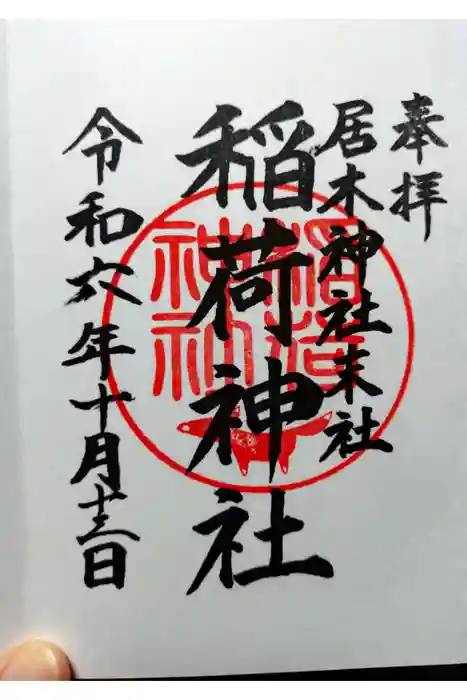 奉拝
居木神社末社
稲荷神社
令和六年十月十三日
稲荷
神社